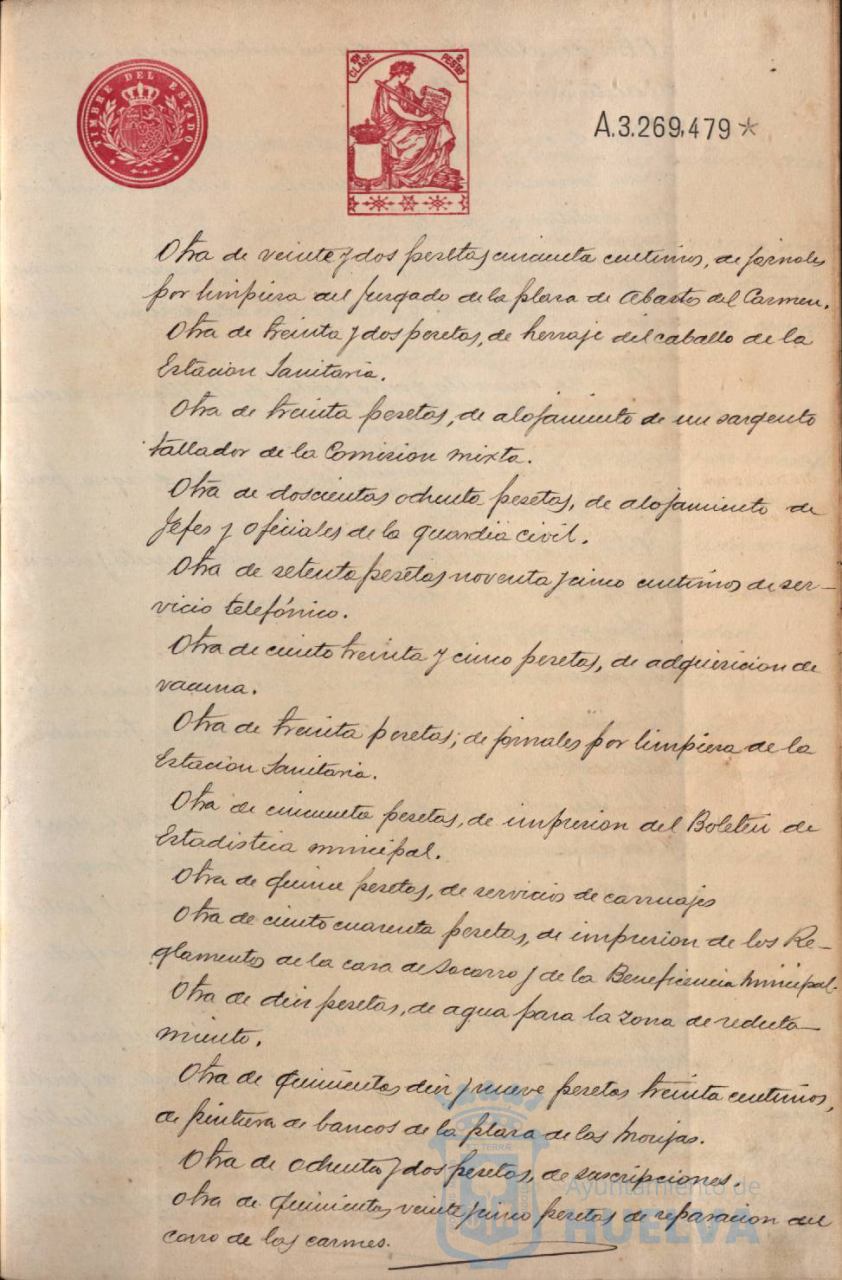 TIMBRE DEL ESTADO
11ª CLASE
2 PESETAS
A.3.269,479*
Otra de veinte y dos pesetas cincuenta centimos, de jornales
por limpieza del Juzgado de la plaza de Abastos del Carmen.
Otra de treinta y dos pesetas, de herraje del caballo de la
Estacion Sanitaria.
Otra de treinta pesetas, de alojamiento de un sargento
tallador de la Comision mixta.
Otra de doscientas ochenta pesetas, de alojamiento de
Jefes y oficiales de la guardia civil.
Otra de setenta pesetas noventa y cinco centimos de ser-
vicio telefónico.
Otra de ciento treinta y cinco pesetas, de adquisicion de
vacuna.
Otra de treinta pesetas, de jornales por limpieza de la
Estacion Sanitaria.
Otra de cincuenta pesetas, de impresion del Boletin de
Estadistica municipal.
Otra de quince pesetas, de servicios de carruajes
Otra de ciento cuarenta pesetas, de impresion de los Re-
glamentos de la casa de Socorro y de la Beneficencia Municipal.
Otra de diez pesetas, de agua para la zona de recluta-
miento.
Otra de quinientas diez y nueve pesetas treinta centimos,
de pintura de bancos de la plaza de las Monjas.
Otra de ochenta y dos pesetas, de suscripciones.
Otra de quinientas veinte y cinco pesetas de reparacion del
carro de las carnes.
Ayuntamiento de
HUELVA